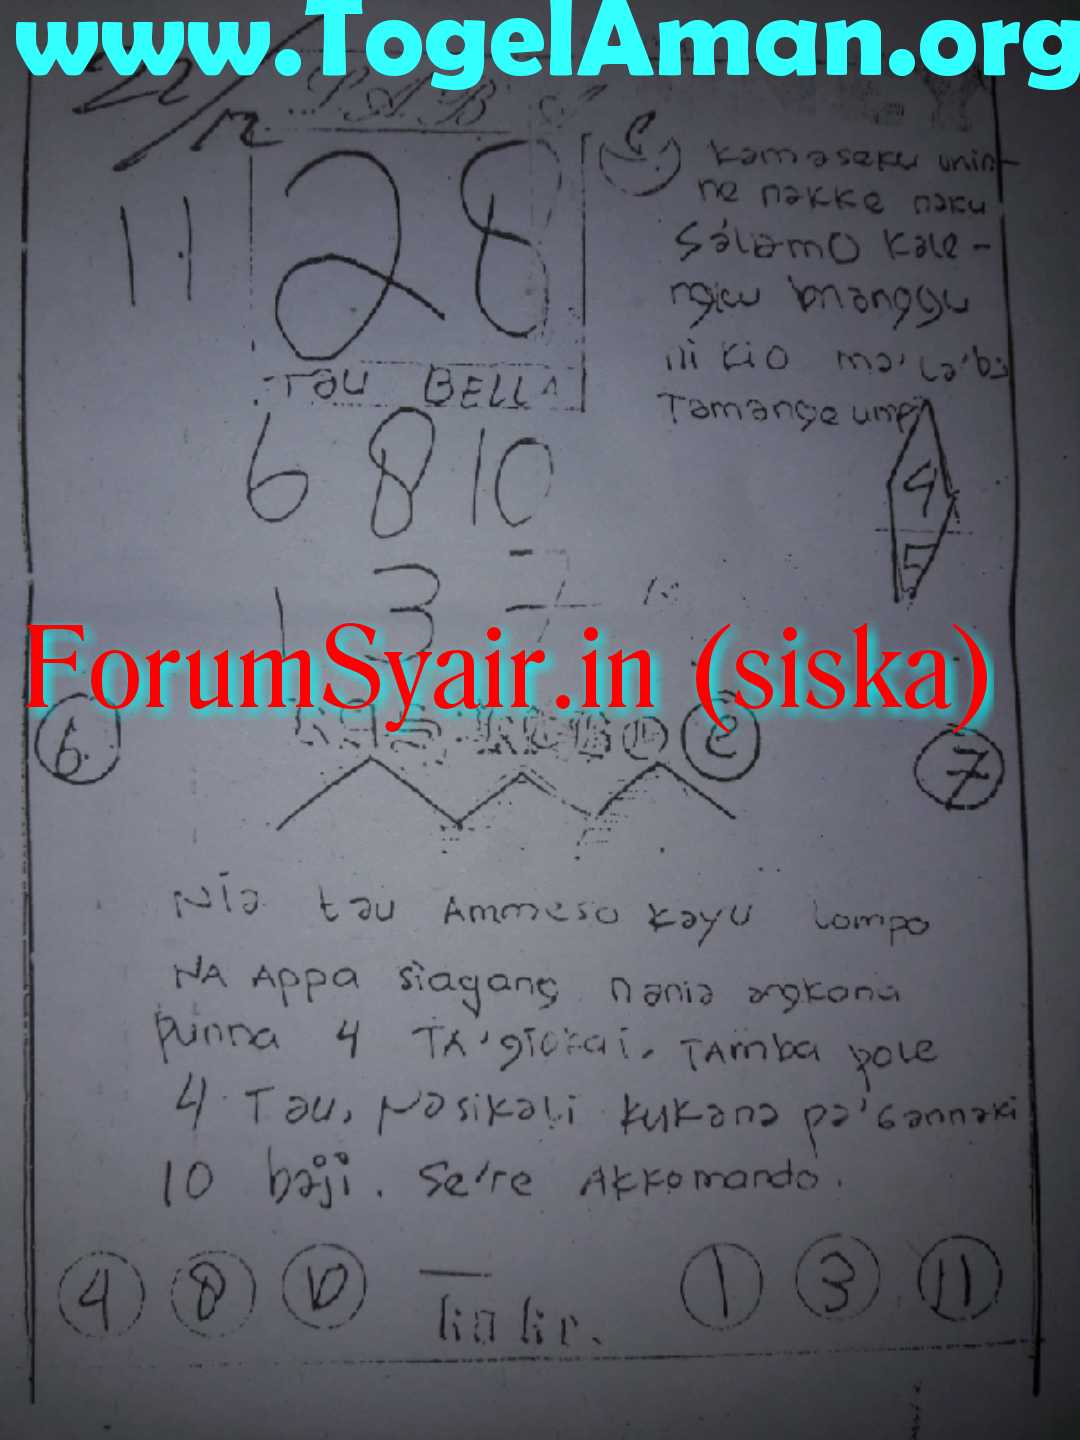 www.TogelAman.org
22/12
11
28
Tau BELLA
Kamaseku unin-
ne nakke naku
Sálamo Kale-
ngku manggu
ni kio ma'la'bi
Tamange
6 8 10
4
5
1 3 7
ForumSyair.in (siska)
6
7
Nia tau Ammeso kayu Lompo
NA Appa siagang nania angkana
punna 4 TA'giokai. TAmba pole
4 Tau, Nasikali kukana pa'Gannaki
10 baji. Se're Akkomando.
4 8 10
1 3 11